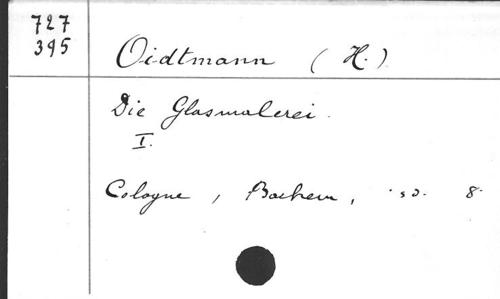 727
395
Oidtmann (H.)
Die Glasmalerei.
I.
Cologne, Bachem, s.d. 8°